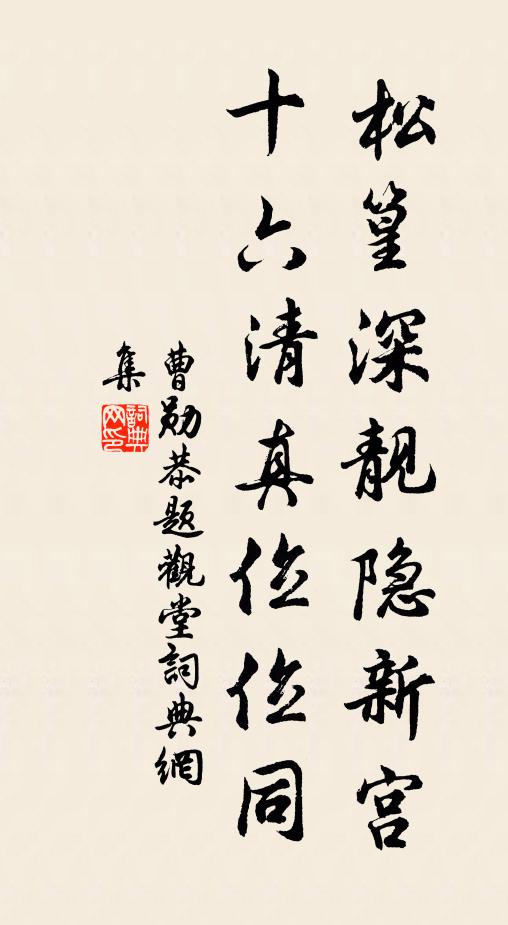 松篁深靓隐新宫
十六清真位位同
曹勋恭题觀堂詞典網
集
詞典網印